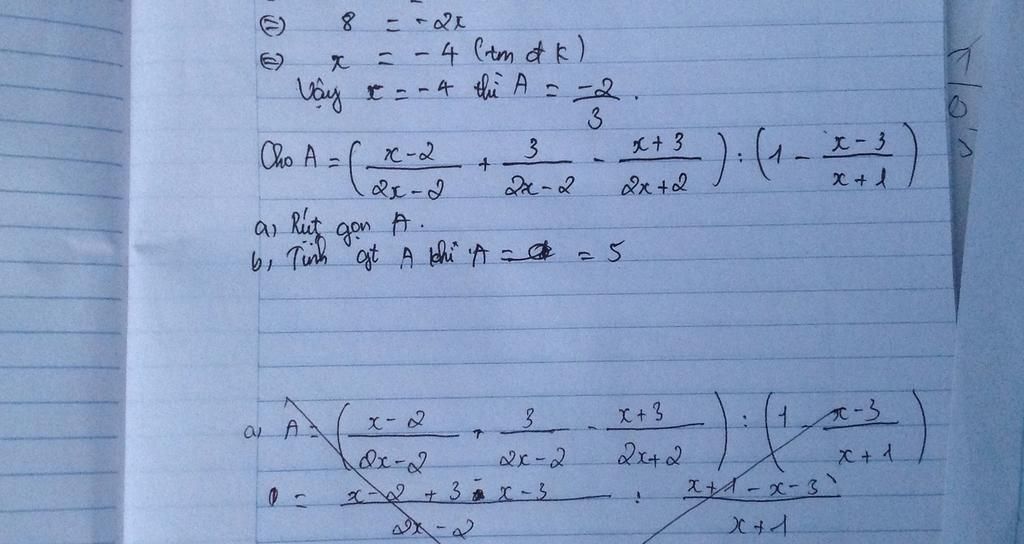 ⇔ 8 = -2x
⇔ x = -4 (tm đk)
Vậy x = -4 thì A = -2/3.
Cho A = ( (x-2)/(2x-2) + 3/(2x-2) - (x+3)/(2x+2) ) : ( 1 - (x-3)/(x+1) )
a, Rút gọn A.
b, Tính gt A khi A = = 5
a, A = ( (x-2)/(2x-2) + 3/(2x-2) - (x+3)/(2x+2) ) : ( 1 - (x-3)/(x+1) )
= (x-2+3 - x-3)/(2x-2) : (x+1-x-3)/(x+1)